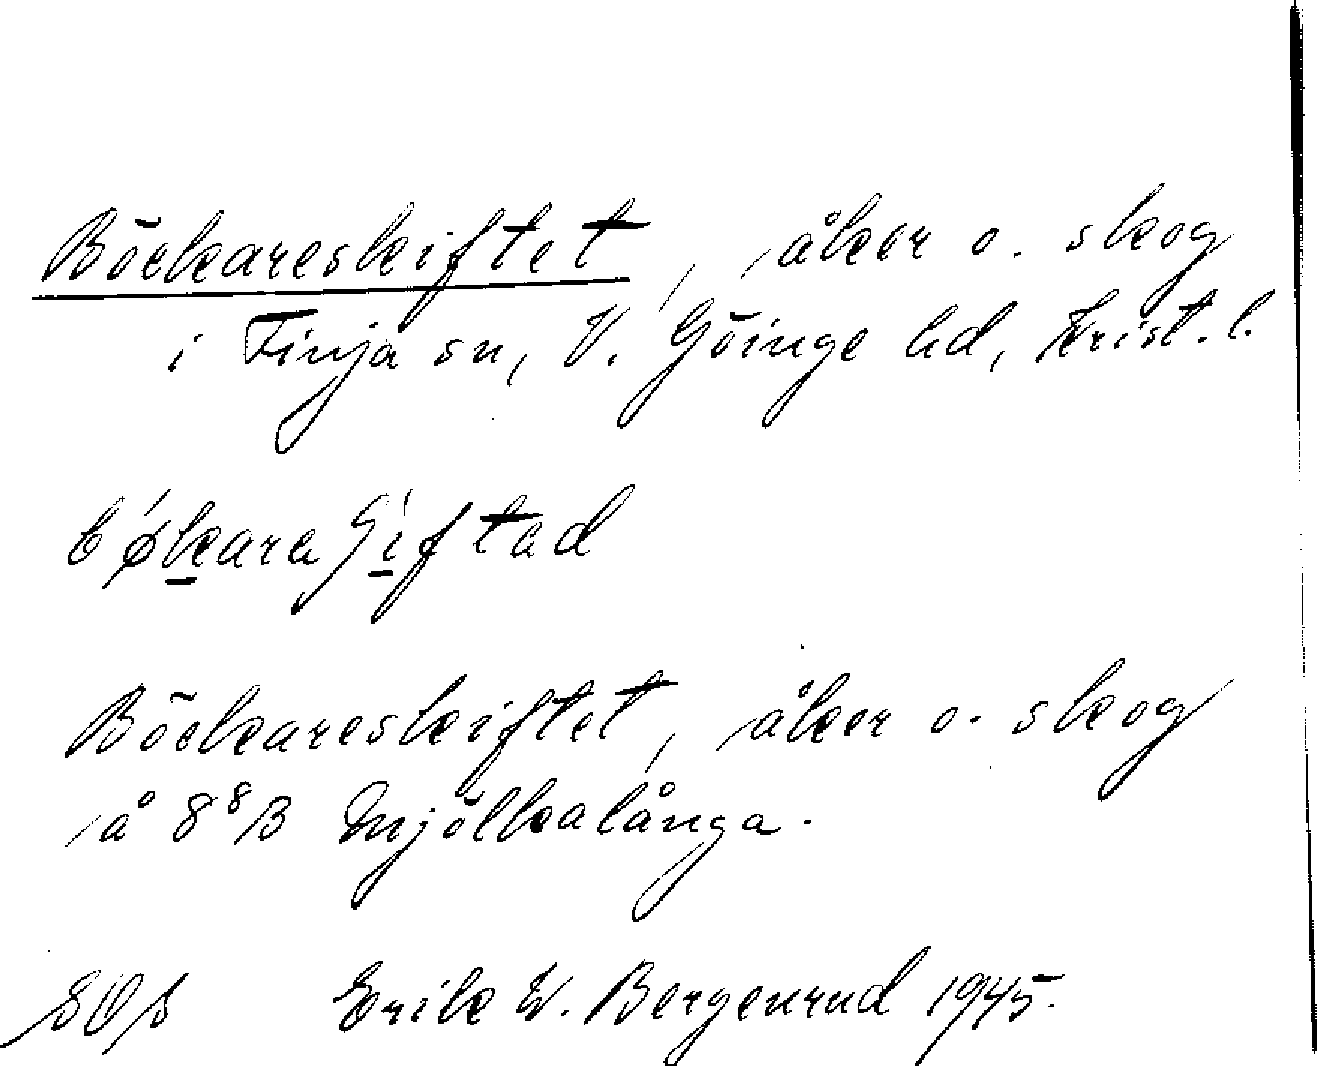 Böckareskiftet, åker o. skog
i Finja sn, V. Göinge hd, Krist. l.
Böckareskiftet, åker o. skog
å 8⁸B Mjölkalånga.
Erik W. Bergenrud 1945.